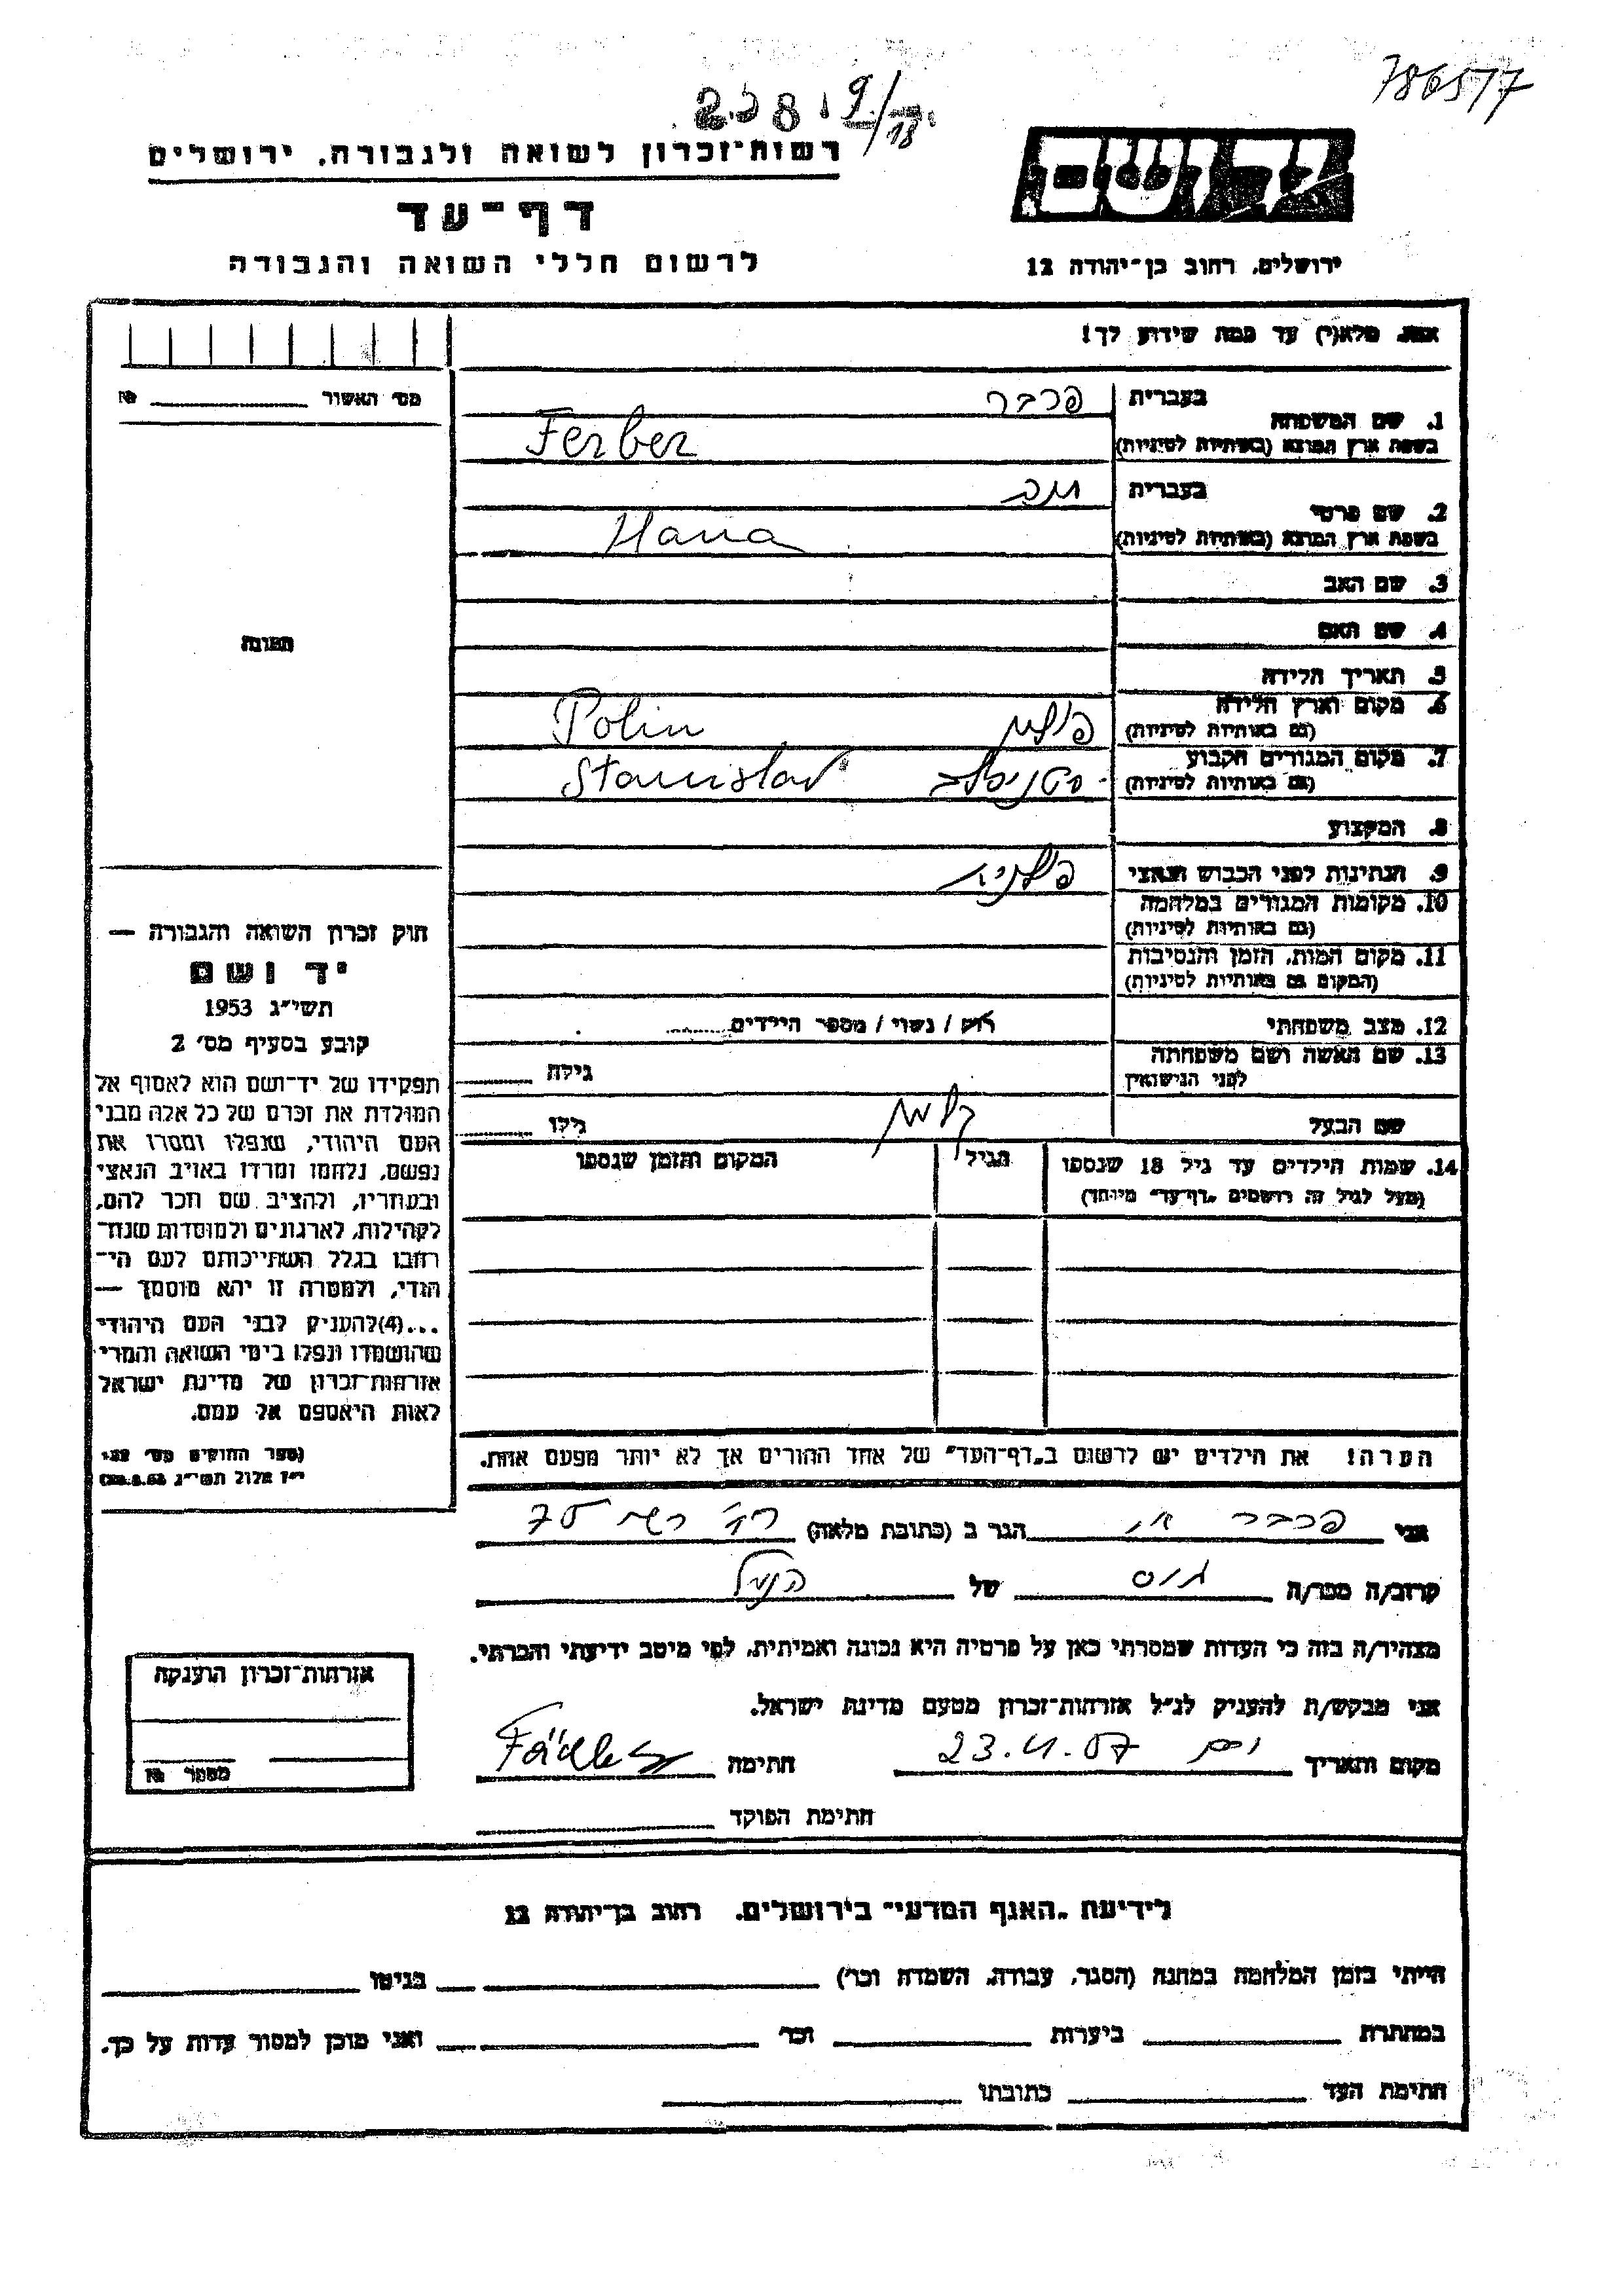 786517
238 9/18
רשות־זכרון לשואה ולגבורה, ירושלים
יד ושם
דף־עד
לרשום חללי השואה והגבורה
ירושלים, רחוב בן־יהודה 12
אנא, מלא(י) עד כמה שידוע לך!
מס׳ האשור №
1. שם המשפחה
בעברית פרבר
בשפת ארץ המוצא (באותיות לטיניות) Ferber
2. שם פרטי
בעברית
בשפת ארץ המוצא (באותיות לטיניות) Hana
3. שם האב
4. שם האם
תמונה
5. תאריך הלידה
6. מקום וארץ הלידה
(גם באותיות לטיניות) פולין Polin
7. מקום המגורים הקבוע
(גם באותיות לטיניות) סטניסלב Stanislav
8. המקצוע
9. הנתינות לפני הכבוש הנאצי פולניה
10. מקומות המגורים במלחמה
(גם באותיות לטיניות)
11. מקום המות, הזמן והנסיבות
(המקום גם באותיות לטיניות)
12. מצב משפחתי רוק / נשוי / מספר הילדים
13. שם האשה ושם משפחתה
לפני הנישואין גילה
שם הבעל גילו
14. שמות הילדים עד גיל 18 שנספו הגיל המקום והזמן שנספו
(מעל לגיל זה רושמים „דף־עד״ מיוחד)
חוק זכרון השואה והגבורה —
יד ושם
תשי״ג 1953
קובע בסעיף מס׳ 2
תפקידו של יד־ושם הוא לאסוף אל
המולדת את זכרם של כל אלה מבני
העם היהודי, שנפלו ומסרו את
נפשם, נלחמו ומרדו באויב הנאצי
ובעוזריו, ולהציב שם וזכר להם,
לקהילות, לארגונים ולמוסדות שנח־
רבו בגלל השתייכותם לעם הי־
הודי, ולמטרה זו יהא מוסמך —
...(4)להעניק לבני העם היהודי
שהושמדו ונפלו בימי השואה והמרי
אזרחות־זכרון של מדינת ישראל
לאות היאספם אל עמם.
(ספר החוקים מס׳ 132
י״ז אלול תשי״ג 28.8.53)
הערה! את הילדים יש לרשום ב„דף־העד״ של אחד ההורים אך לא יותר מפעם אחת.
אני פרבר הגר ב (כתובת מלאה) 75
קרוב/ה מכר/ה גיס של הנ״ל
מצהיר/ה בזה כי העדות שמסרתי כאן על פרטיה היא נכונה ואמיתית, לפי מיטב ידיעתי והכרתי.
אני מבקש/ת להעניק לנ״ל אזרחות־זכרון מטעם מדינת ישראל.
מקום ותאריך 23.4.57 חתימה
חתימת הפוקד
אזרחות־זכרון הוענקה
מספר №
לידיעת „האגף המדעי״ בירושלים, רחוב בן־יהודה 12
הייתי בזמן המלחמה במחנה (הסגר, עבודה, השמדה וכו׳) בגיטו
במחתרת ביערות וכו׳ ואני מוכן למסור עדות על כך.
חתימת העד כתובתו